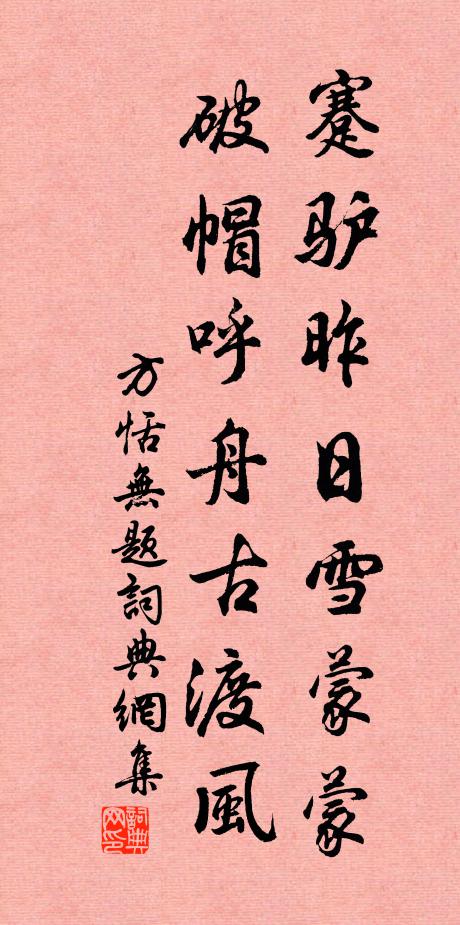 蹇驴昨日雪蒙蒙
破帽呼舟古渡風
方恬無题詞典網集
詞典网印